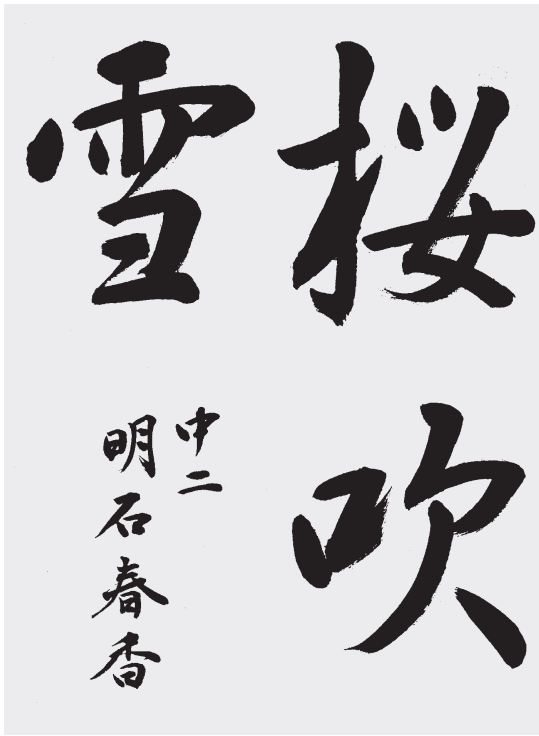 桜吹
雪
中二
明石春香